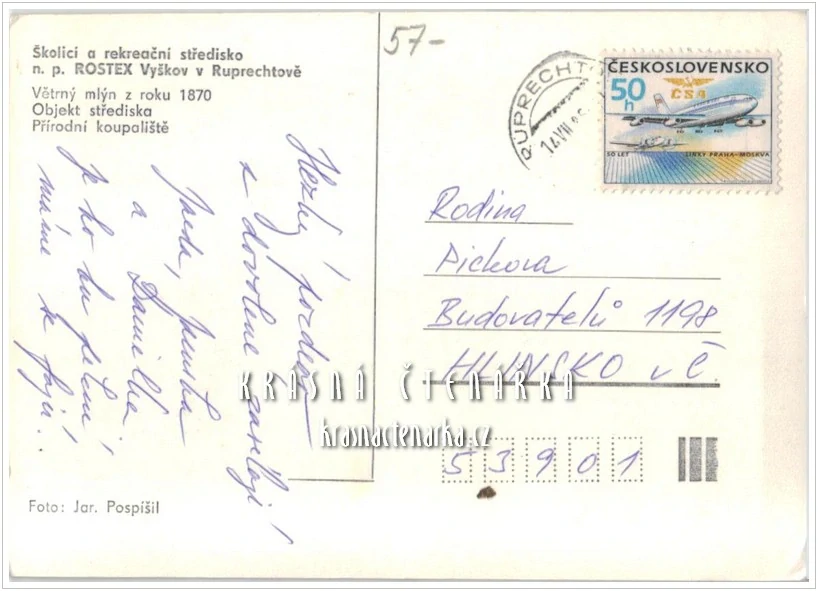 Školicí a rekreační středisko
n. p. ROSTEX Vyškov v Ruprechtově
Větrný mlýn z roku 1870
Objekt střediska
Přírodní koupaliště
57-
RUPRECHTO
14.VIII.86
ČESKOSLOVENSKO
50 h
ČSA
50 LET LINKY PRAHA-MOSKVA
Hezký pozdrav
z dovolené zasílají
a Danilka
Je to tu
máme se fajn!
Rodina
Pickova
Budovatelů 1198
HLINSKO v Č.
53901
KRÁSNÁ ČTENÁŘKA
krasnactenarka.cz
Foto: Jar. Pospíšil